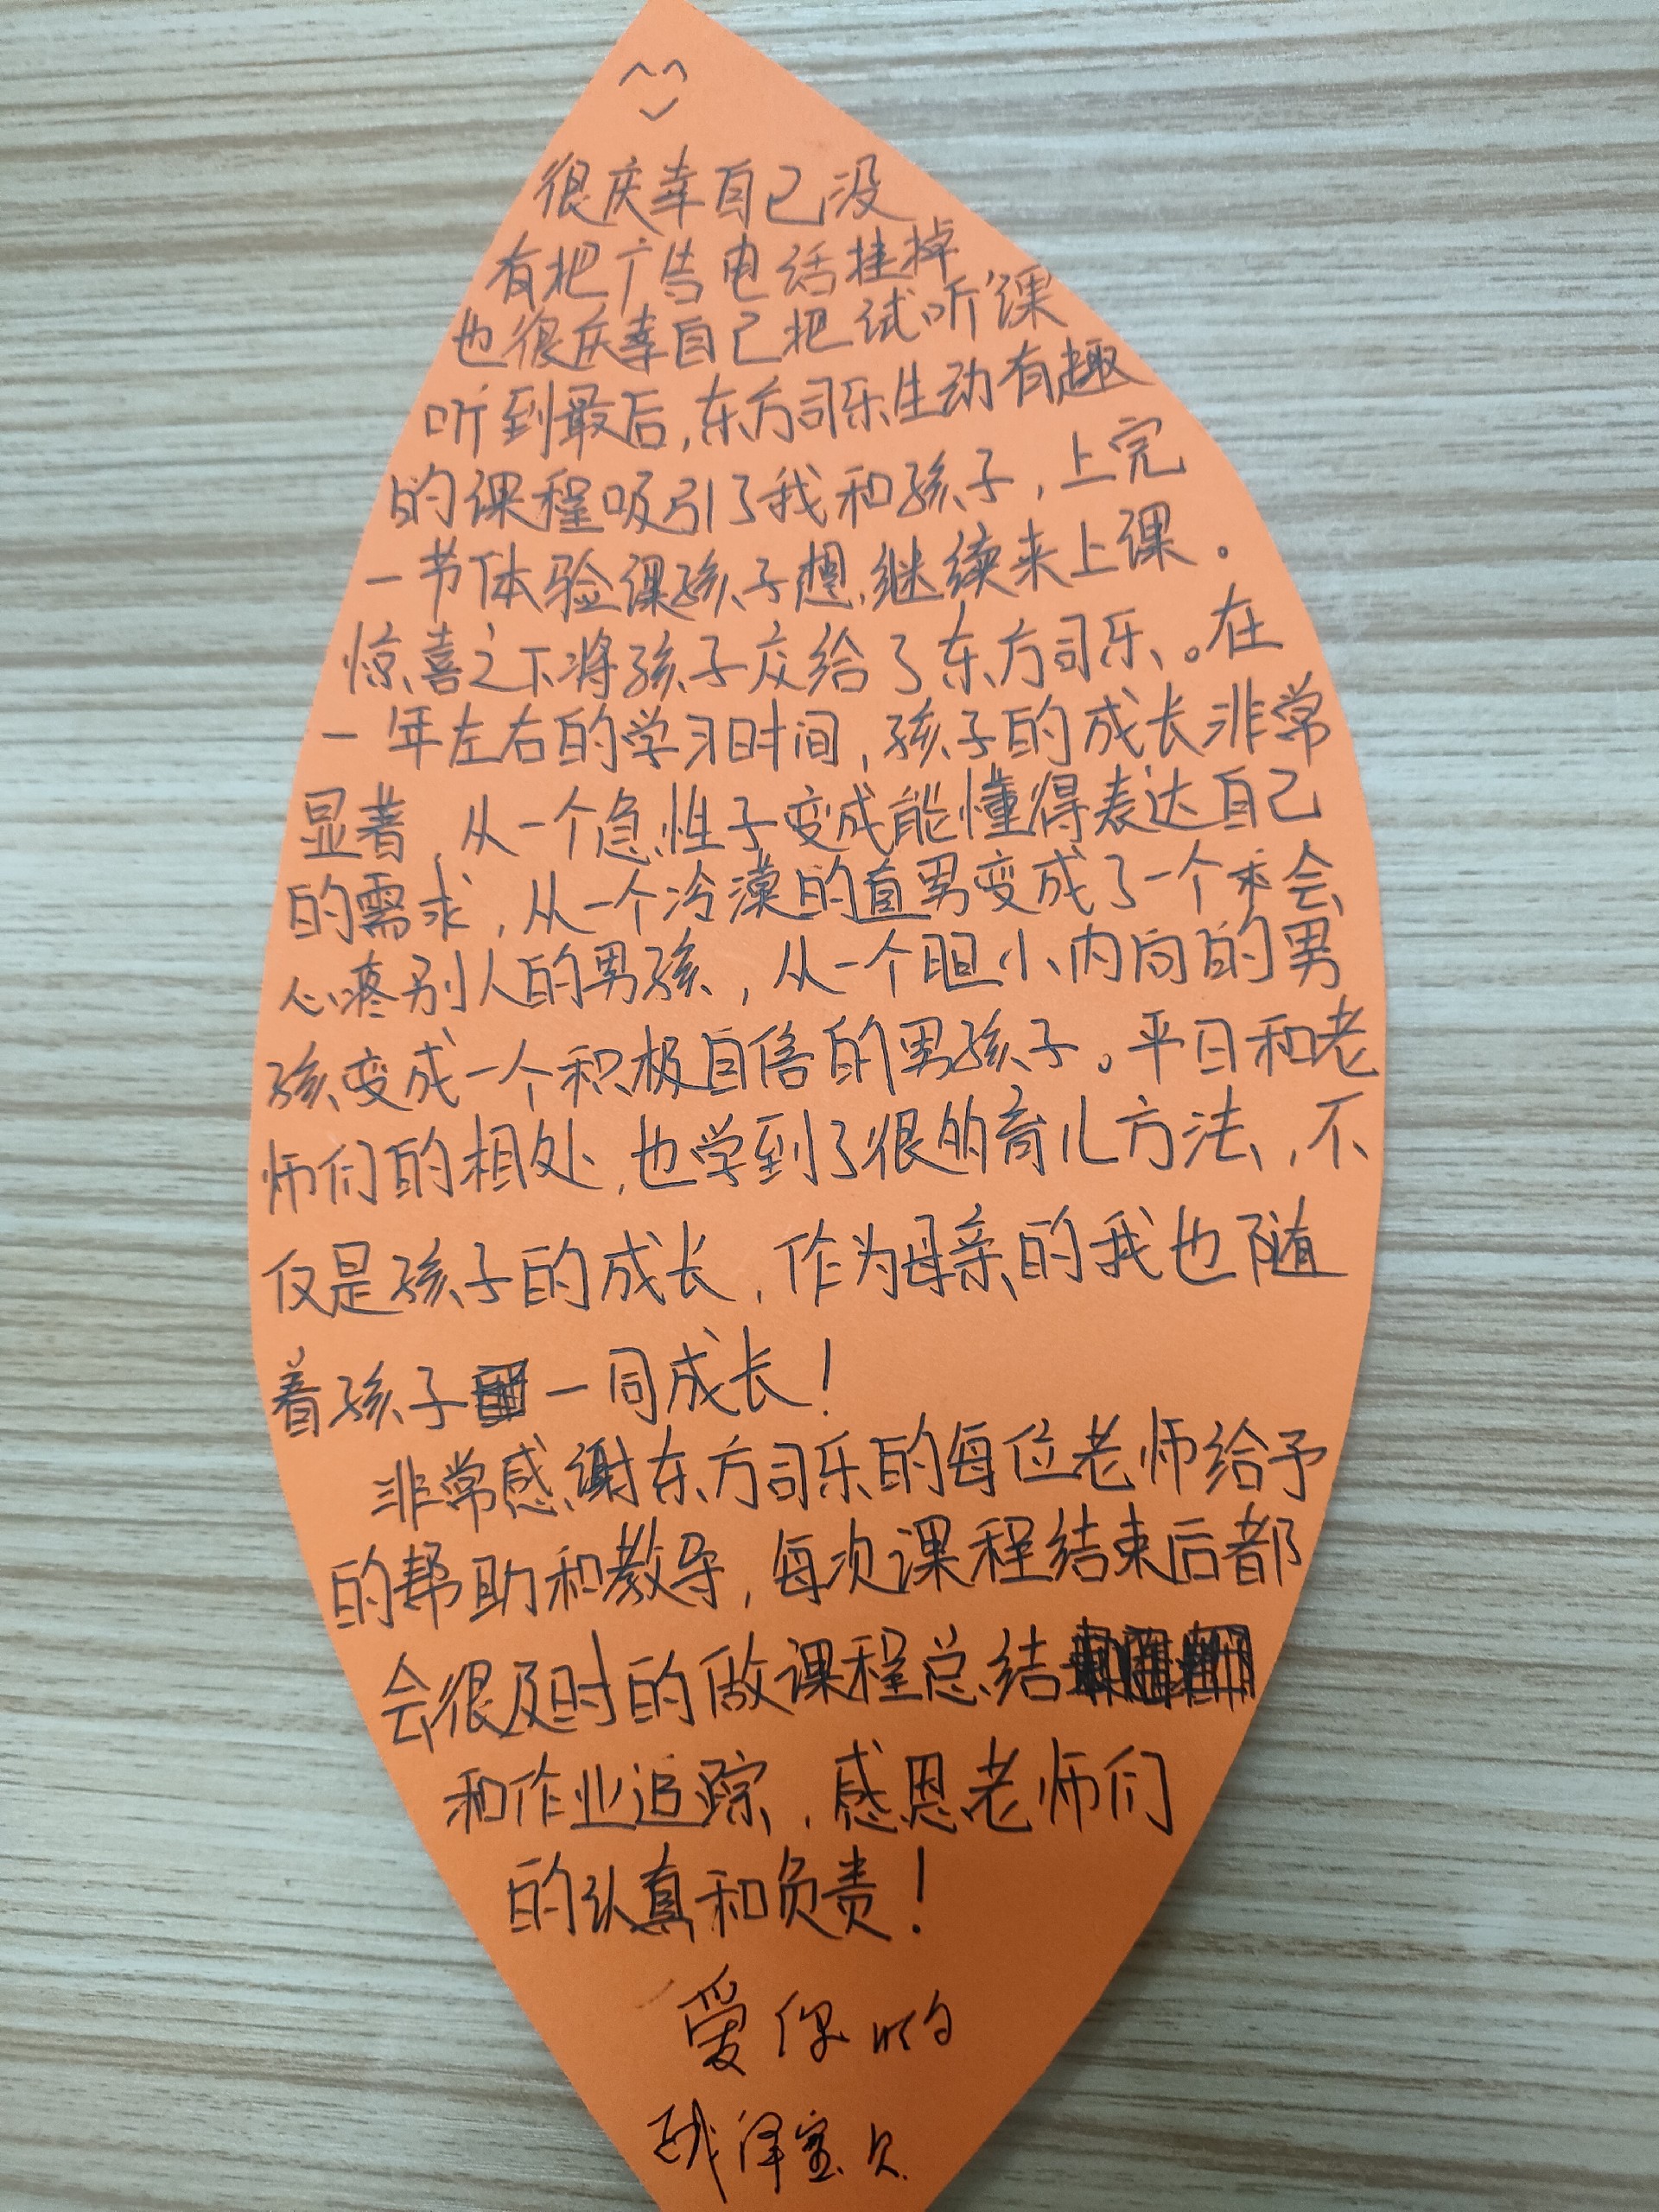 很庆幸自己没
有把广告电话挂掉
也很庆幸自己把试听课
听到最后,东方司乐生动有趣
的课程吸引了我和孩子,上完
一节体验课孩子想继续来上课。
惊喜之下将孩子交给了东方司乐。在
一年左右的学习时间,孩子的成长非常
显著,从一个急性子变成能懂得表达自己
的需求,从一个冷漠的直男变成了一个会
心疼别人的男孩,从一个胆小内向的男
孩变成一个积极自信的男孩子。平日和老
师们的相处,也学到了很的育儿方法,不
仅是孩子的成长,作为母亲的我也随
着孩子一同成长!
非常感谢东方司乐的每位老师给予
的帮助和教导,每次课程结束后都
会很及时的做课程总结
和作业追踪,感恩老师们
的认真和负责!
爱你哟
泽宝贝